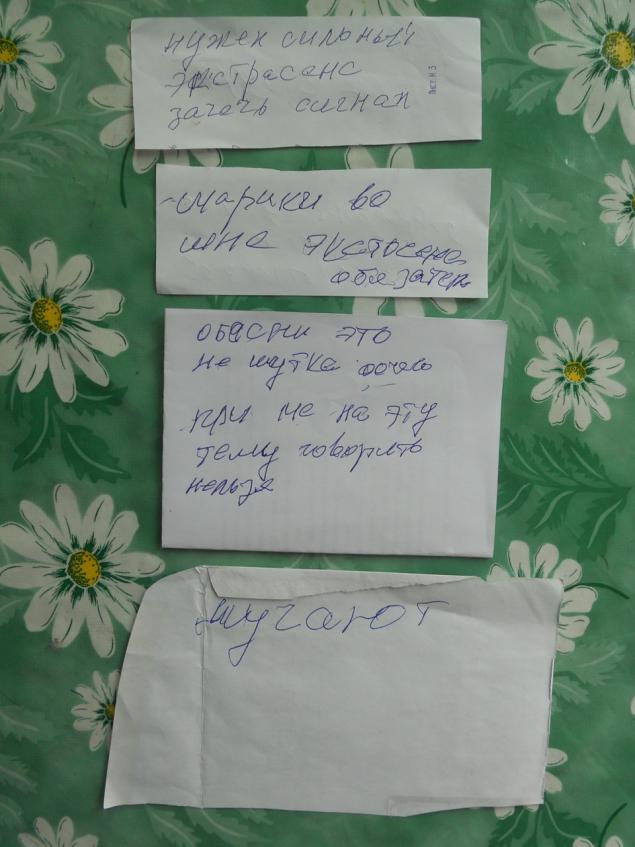 нужен сильный
экстрасанс
зачачь сигнал
Лист N 3
шарики во
мне экстросенс
обязатель
обасни это
не шутка
при ме на эту
тему говорить
нельзя
шугают